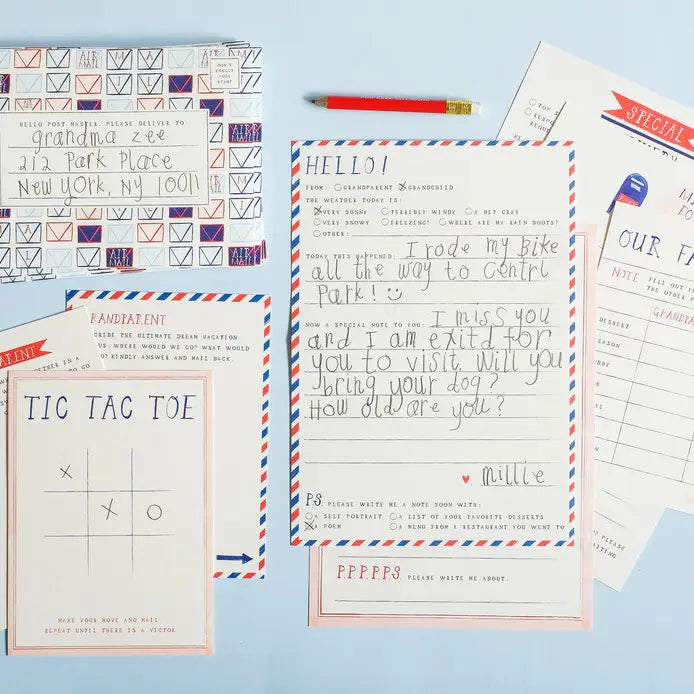 AIR MAIL
DON'T FORGET YOUR STAMP
HELLO POST MASTER, PLEASE DELIVER TO:
grandma zee
212 Park Place
New York, NY 10011
HELLO!
FROM: GRANDPARENT GRANDCHILD
THE WEATHER TODAY IS:
VERY SUNNY TERRIBLY WINDY A BIT GRAY
VERY SNOWY FREEZING! WHERE ARE MY RAIN BOOTS?
OTHER:
TODAY THIS HAPPENED: I rode my Bike
all the way to Centrl
Park!
NOW A SPECIAL NOTE TO YOU: I miss you
and I am exitd for
you to visit. Will you
bring your dog?
How old are you?
millie
P.S. PLEASE WRITE ME A NOTE SOON WITH:
A SELF PORTRAIT A LIST OF YOUR FAVORITE DESSERTS
A POEM A MENU FROM A RESTAURANT YOU WENT TO
P.P.P.P.P.S. PLEASE WRITE ME ABOUT:
GRANDPARENT
CRIBE THE ULTIMATE DREAM VACATION
US. WHERE WOULD WE GO? WHAT WOULD
DO? KINDLY ANSWER AND MAIL BACK.
PARENT
TIC TAC TOE
X
X O
MAKE YOUR MOVE AND MAIL
REPEAT UNTIL THERE IS A VICTOR
SPECIAL
OUR FA
NOTE FILL OUT
THE OTHER
GRANDPA
DESSERT
SEASON